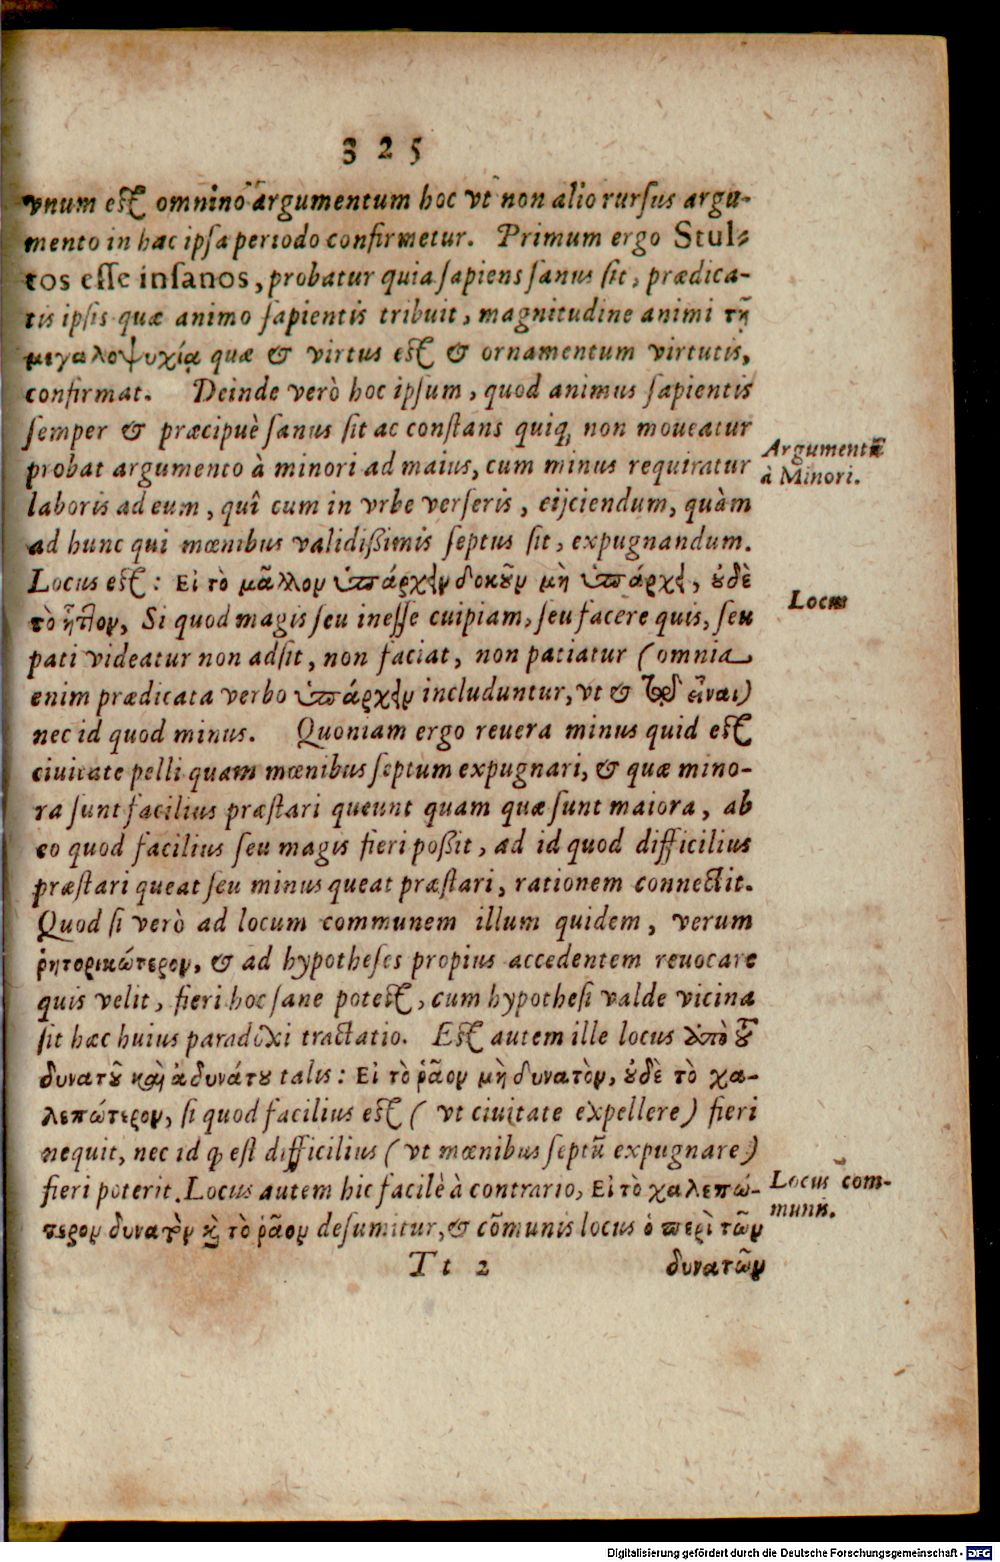 325
vnum est omninò argumentum hoc vt non alio rursus argu-
mento in hac ipsa periodo confirmetur. Primum ergo Stul-
tos esse insanos, probatur quia sapiens sanus sit, prædica-
tis ipsis quæ animo sapientis tribuit, magnitudine animi τῇ
μεγαλοψυχίᾳ quæ & virtus est & ornamentum virtutis,
confirmat. Deinde verò hoc ipsum, quod animus sapientis
semper & præcipuè sanus sit ac constans quiq; non moueatur
probat argumento à minori ad maius, cum minus requiratur
laboris ad eum, quî cum in vrbe verseris, eijciendum, quàm
ad hunc qui mœnibus validißimis septus sit, expugnandum.
Locus est: Εἰ τὸ μᾶλλον ὑπάρχειν δοκοῦν μὴ ὑπάρχει, ουδὲ
τὸ ἧττον, Si quod magis seu inesse cuipiam, seu facere quis, seu
pati videatur non adsit, non faciat, non patiatur (omnia
enim prædicata verbo ὑπάρχειν includuntur, vt & τοῦ εἶναι)
nec id quod minus. Quoniam ergo reuera minus quid est
ciuitate pelli quam mœnibus septum expugnari, & quæ mino-
ra sunt facilius præstari queunt quam quæ sunt maiora, ab
eo quod facilius seu magis fieri poßit, ad id quod difficilius
præstari queat seu minus queat præstari, rationem connectit.
Quod si verò ad locum communem illum quidem, verum
ῥητορικώτερον, & ad hypotheses propius accedentem reuocare
quis velit, fieri hoc sane potest, cum hypothesi valde vicina
sit hæc huius paradoxi tractatio. Est autem ille locus ἀπὸ τοῦ
δυνατοῦ καὶ ἀδυνάτου talis: Εἰ τὸ ῥᾷον μὴ δυνατὸν, ουδὲ τὸ χα-
λεπώτερον, si quod facilius est ( vt ciuitate expellere) fieri
nequit, nec id q, est difficilius (vt mœnibus septū expugnare)
fieri poterit. Locus autem hic facilè à contrario, Εἰ τὸ χαλεπώ-
τερον δυνατὸν καὶ τὸ ῥᾷον desumitur, & cōmunis locus ὁ περὶ τῶν
Tt 2 δυνατῶν
Argumentū
à Minori.
Locus
Locus com-
munis.
Digitalisierung gefördert durch die Deutsche Forschungsgemeinschaft - DFG